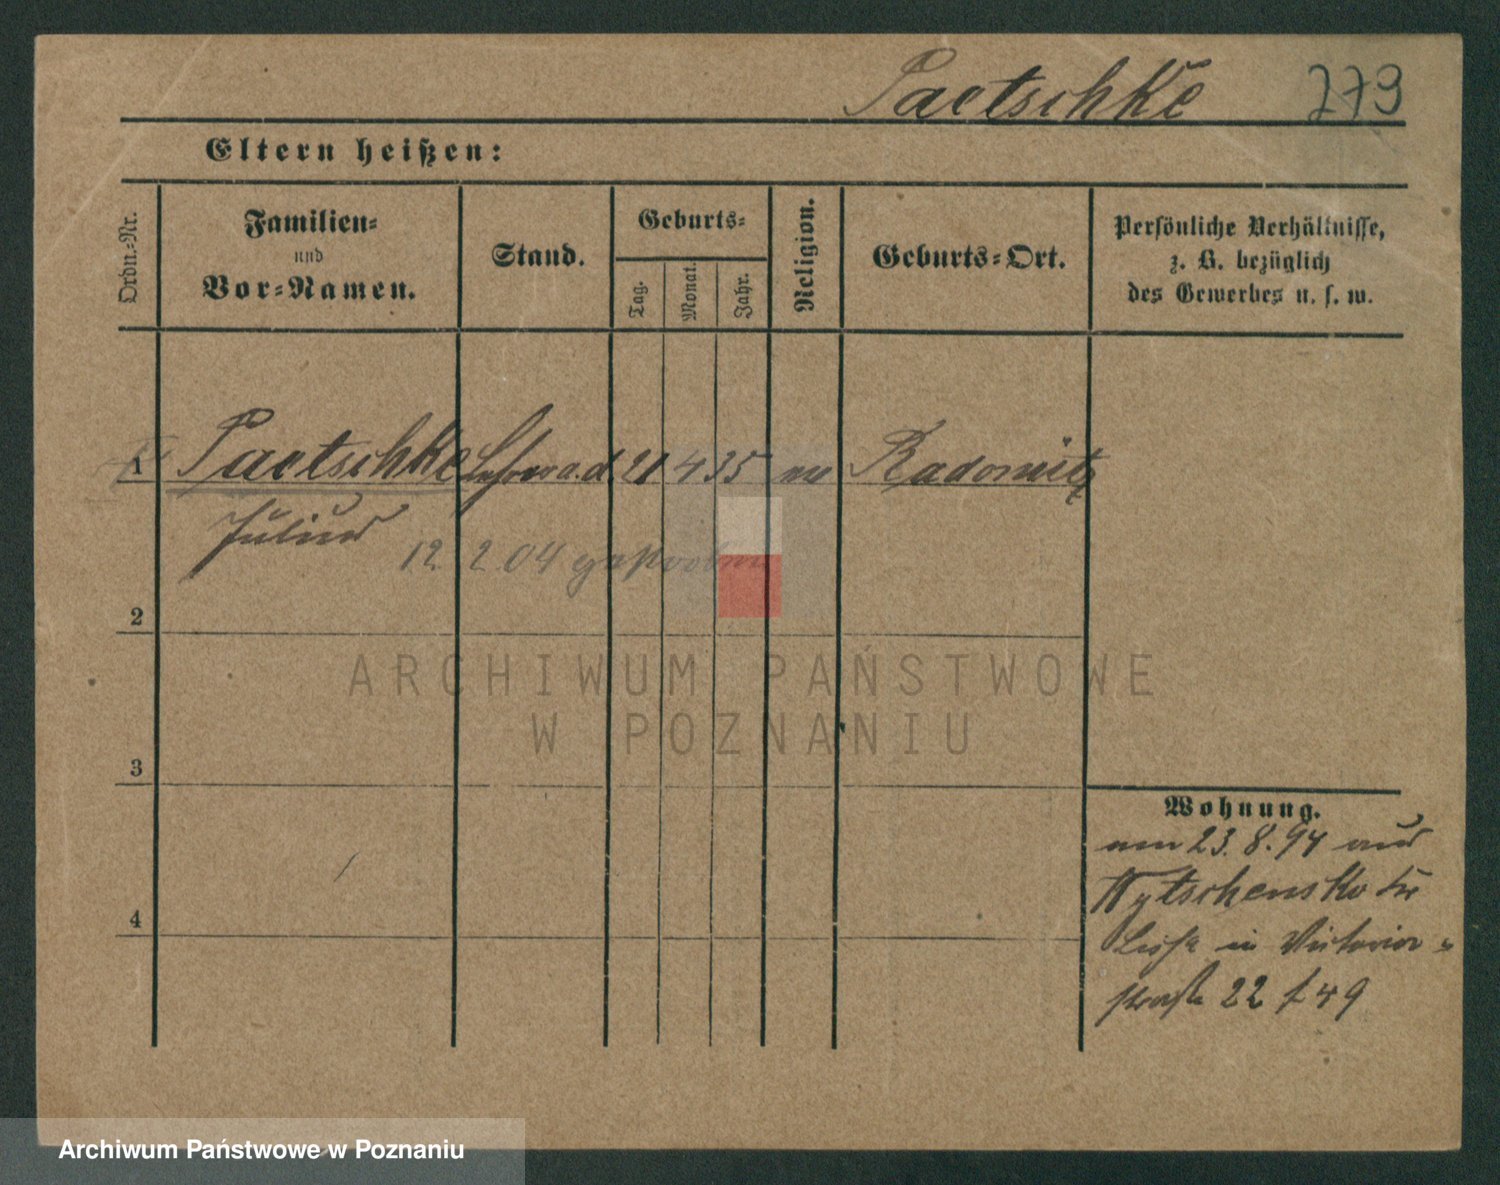 Paetschke 279
Eltern heißen:
Ordn.-Nr.
Familien-
und
Vor-Namen.
Stand.
Geburts-
Tag.
Monat.
Jahr.
Religion.
Geburts-Ort.
Persönliche Verhältnisse,
z. B. bezüglich
des Gewerbes u. s. w.
1 Paetschke Lehrer a. d. 21 4 35 ev Radomitz
Julius
12. 2 04 gestorben
2
3
4
Wohnung.
am 23. 8. 94 aus
Lissa in Victoria-
straße 22 b 49
ARCHIWUM PAŃSTWOWE
W POZNANIU
Archiwum Państwowe w Poznaniu